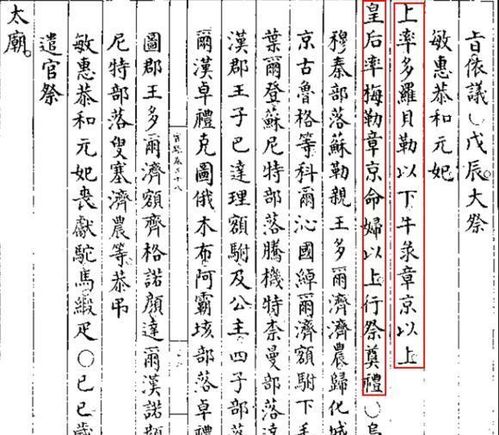 旨依議○戊辰大祭
敏惠恭和元妃
上率多羅貝勒以下牛彔章京以上
皇后率梅勒章京命婦以上行祭奠禮○烏
穆秦部落蘇勒親王多爾濟濟農歸化城
京古魯格等科爾沁國綽爾濟額駙下
葉爾登蘇尼特部落騰機特柰曼部落
漢郡王子巴達理額駙及公主四子部
爾漢卓禮克圖俄木布阿霸垓部落卓禮
圖郡王多爾濟額齊格諾顏達爾漢諾
尼特部落叟塞濟農等恭弔
敏惠恭和元妃喪獻駝馬緞疋○己巳歲
遣官祭
太廟